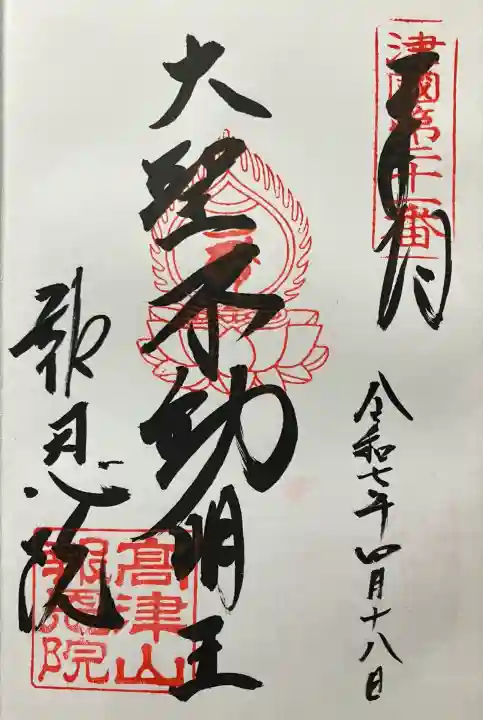 津國第二十一番
奉拝
令和七年四月十八日
大聖不動明王
報恩院
高津山
報恩院